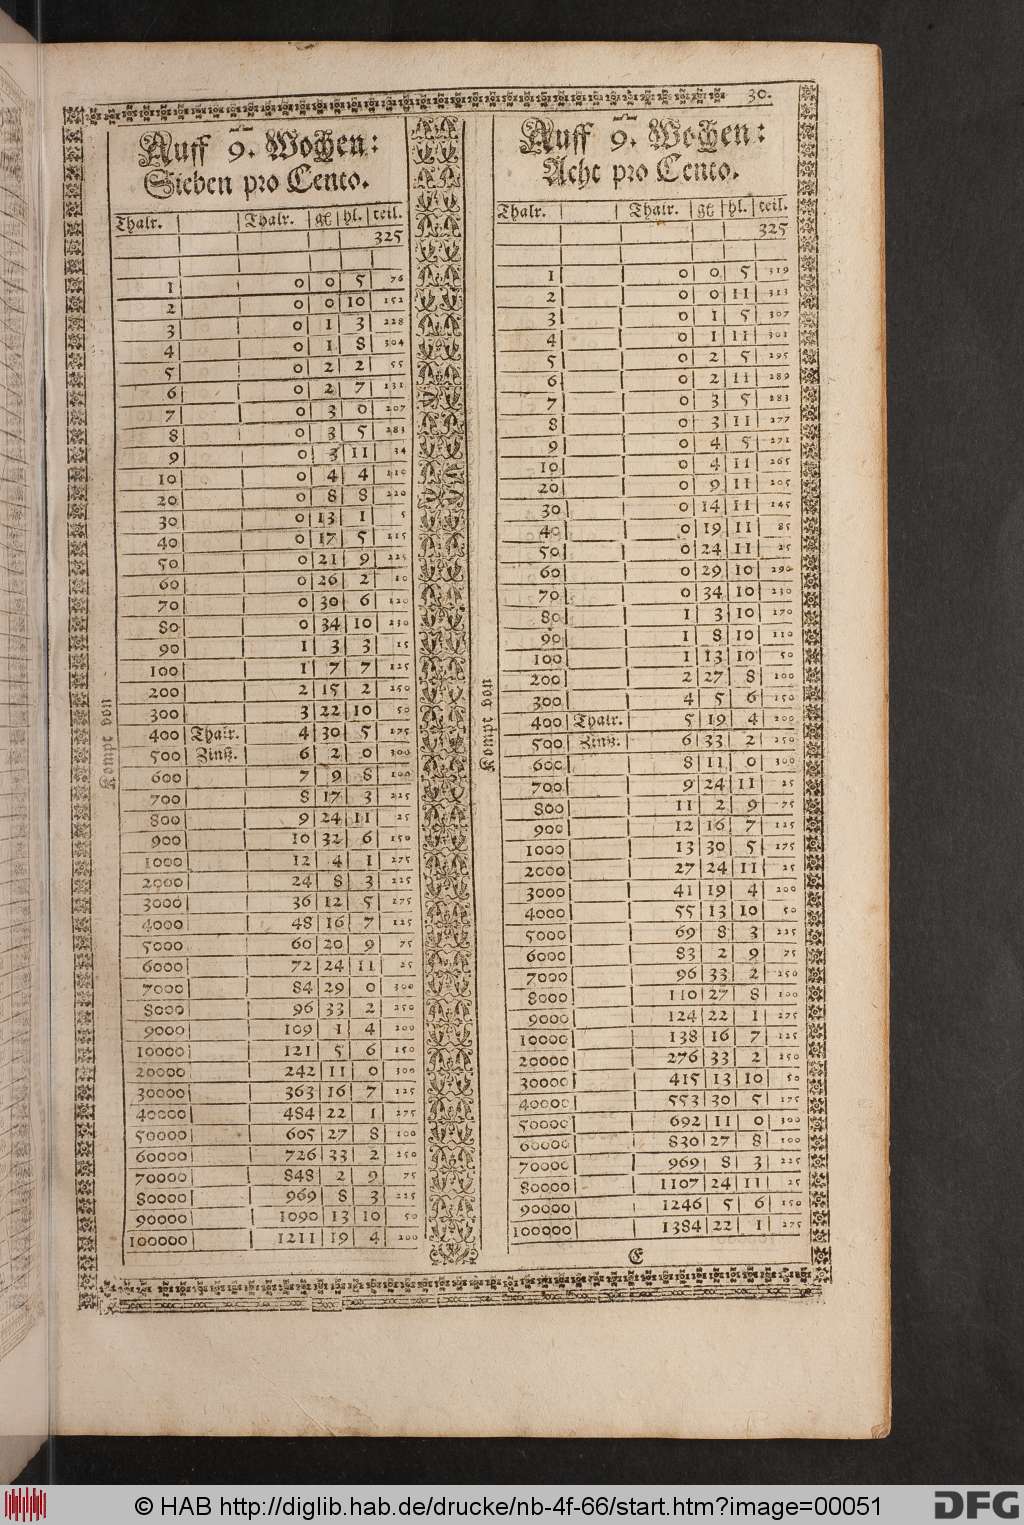 30.
Auff 9. Wochen:
Sieben pro Cento.
Thalr. Thalr. gl hl. teil.
325
1 0 0 5 76
2 0 0 10 152
3 0 1 3 228
4 0 1 8 304
5 0 2 2 55
6 0 2 7 131
7 0 3 0 207
8 0 3 5 283
9 0 3 11 34
10 0 4 4 110
20 0 8 8 220
30 0 13 1 5
40 0 17 5 115
50 0 21 9 225
60 0 26 2 10
70 0 30 6 120
80 0 34 10 230
90 1 3 3 15
100 1 7 7 125
200 2 15 2 250
300 3 22 10 50
400 Thalr. 4 30 5 175
500 Zinß. 6 2 0 300
600 7 9 8 100
700 8 17 3 225
800 9 24 11 25
900 10 32 6 150
1000 12 4 1 275
2000 24 8 3 225
3000 36 12 5 175
4000 48 16 7 125
5000 60 20 9 75
6000 72 24 11 25
7000 84 29 0 300
8000 96 33 2 250
9000 109 1 4 200
10000 121 5 6 150
20000 242 11 0 300
30000 363 16 7 125
40000 484 22 1 275
50000 605 27 8 100
60000 726 33 2 250
70000 848 2 9 75
80000 969 8 3 225
90000 1090 13 10 50
100000 1211 19 4 200
Kompt von
Auff 9. Wochen:
Acht pro Cento.
Thalr. Thalr. gl hl. teil.
325
1 0 0 5 319
2 0 0 11 313
3 0 1 5 307
4 0 1 11 301
5 0 2 5 295
6 0 2 11 289
7 0 3 5 283
8 0 3 11 277
9 0 4 5 271
10 0 4 11 265
20 0 9 11 205
30 0 14 11 145
40 0 19 11 85
50 0 24 11 25
60 0 29 10 290
70 0 34 10 230
80 1 3 10 170
90 1 8 10 110
100 1 13 10 50
200 2 27 8 100
300 4 5 6 150
400 Thalr. 5 19 4 200
500 Zinß. 6 33 2 250
600 8 11 0 300
700 9 24 11 25
800 11 2 9 75
900 12 16 7 125
1000 13 30 5 175
2000 27 24 11 25
3000 41 19 4 200
4000 55 13 10 50
5000 69 8 3 225
6000 83 2 9 75
7000 96 33 2 250
8000 110 27 8 100
9000 124 22 1 275
10000 138 16 7 125
20000 276 33 2 250
30000 415 13 10 50
40000 553 30 5 175
50000 692 11 0 300
60000 830 27 8 100
70000 969 8 3 225
80000 1107 24 11 25
90000 1246 5 6 150
100000 1384 22 1 275
Kompt von
E
© HAB http://diglib.hab.de/drucke/nb-4f-66/start.htm?image=00051
DFG